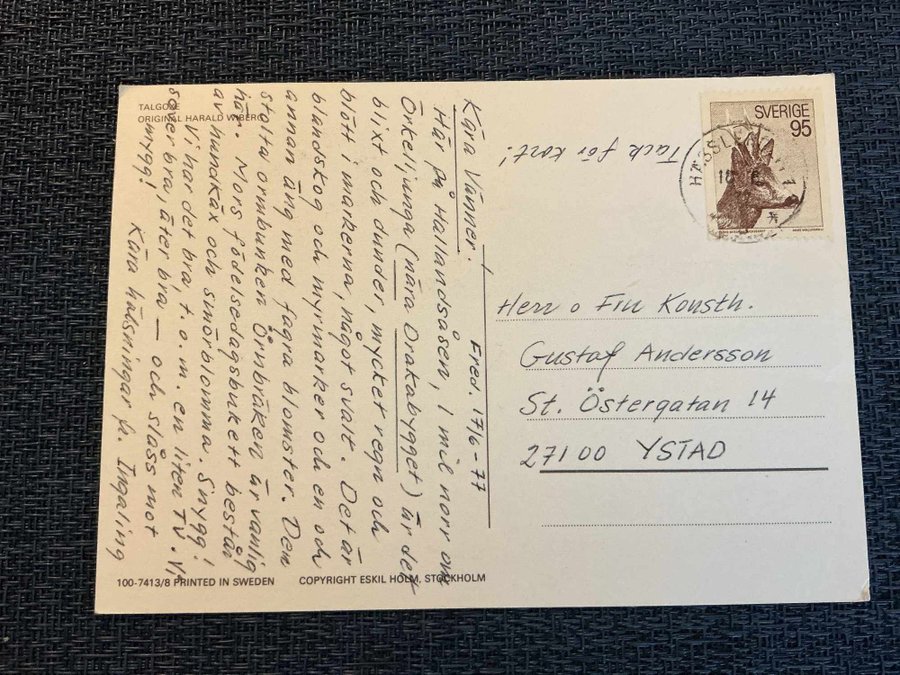 TALGOXE
ORIGINAL HARALD WIBERG
SVERIGE
95
Tack för kort!
Fred. 17/6-77
Kära Vänner.
Här på Hallandsåsen, 1 mil norr om
Örkelljunga (nära Drakabygget) är det
blixt och dunder, mycket regn och
blött i markerna, något svalt. Det är
blandskog och myrmarker och en och
annan äng med fagra blomster. Den
stolta ormbunken Örnbräken är vanlig
här. Mors födelsedagsbukett består
av hundkäx och smörblomma. Snygg!
Vi har det bra, t.o.m. en liten TV. Vi
sover bra, äter bra — och slåss mot
mygg!
Kära hälsningar fr. Ingaling
Herr o Fru Konsth.
Gustaf Andersson
St. Östergatan 14
27100 YSTAD
100-7413/8 PRINTED IN SWEDEN
COPYRIGHT ESKIL HOLM, STOCKHOLM